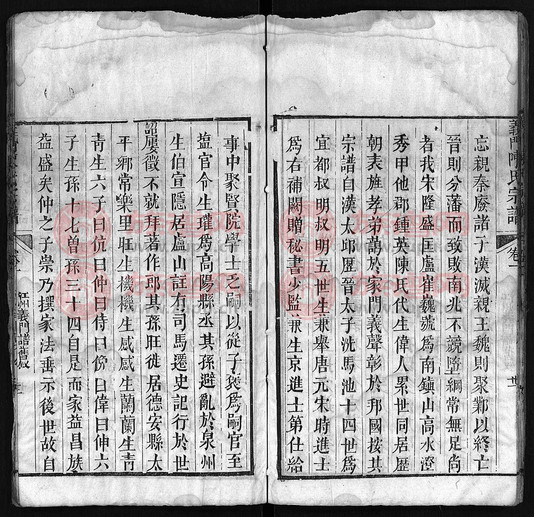 忘親秦廢諸子漢滅親王魏則聚黐以終亡
晉則分藩而致敗南北不競墮綱常無足尚
者我宋隆盛匡廬崔巍巍為南鎮山高水澄
秀甲他郡鍾英陳氏代生偉人累世同居歷
朝表旌孝弟萬於家門義聲彰於邦國按其
宗譜自漢太邱歷晉太子洗馬池十四世為
宜都叔明叔明五世生兼舉唐元宋時進士
為右補闕贈秘書少監兼生京進士第仕給
義門陳氏宗譜
卷一
事中聚賢院學士之嗣以從子襃為嗣官至
盐官令生瓘為高陽縣丞其孫避亂於泉州
生伯宣隱居廬山註有司馬遷史記行於世
詔屢徵不就拜著作郎其孫旺徙居德安縣太
平鄉常樂里旺生機機生感感生蘭蘭生青
青生六子曰伉曰仲曰侍曰傍曰偉曰伸六
子生孫十七曾孫三十四自是而家益昌族
益盛矣仲之子崇乃撰家法垂示後世故自
江州義門譜舊叙